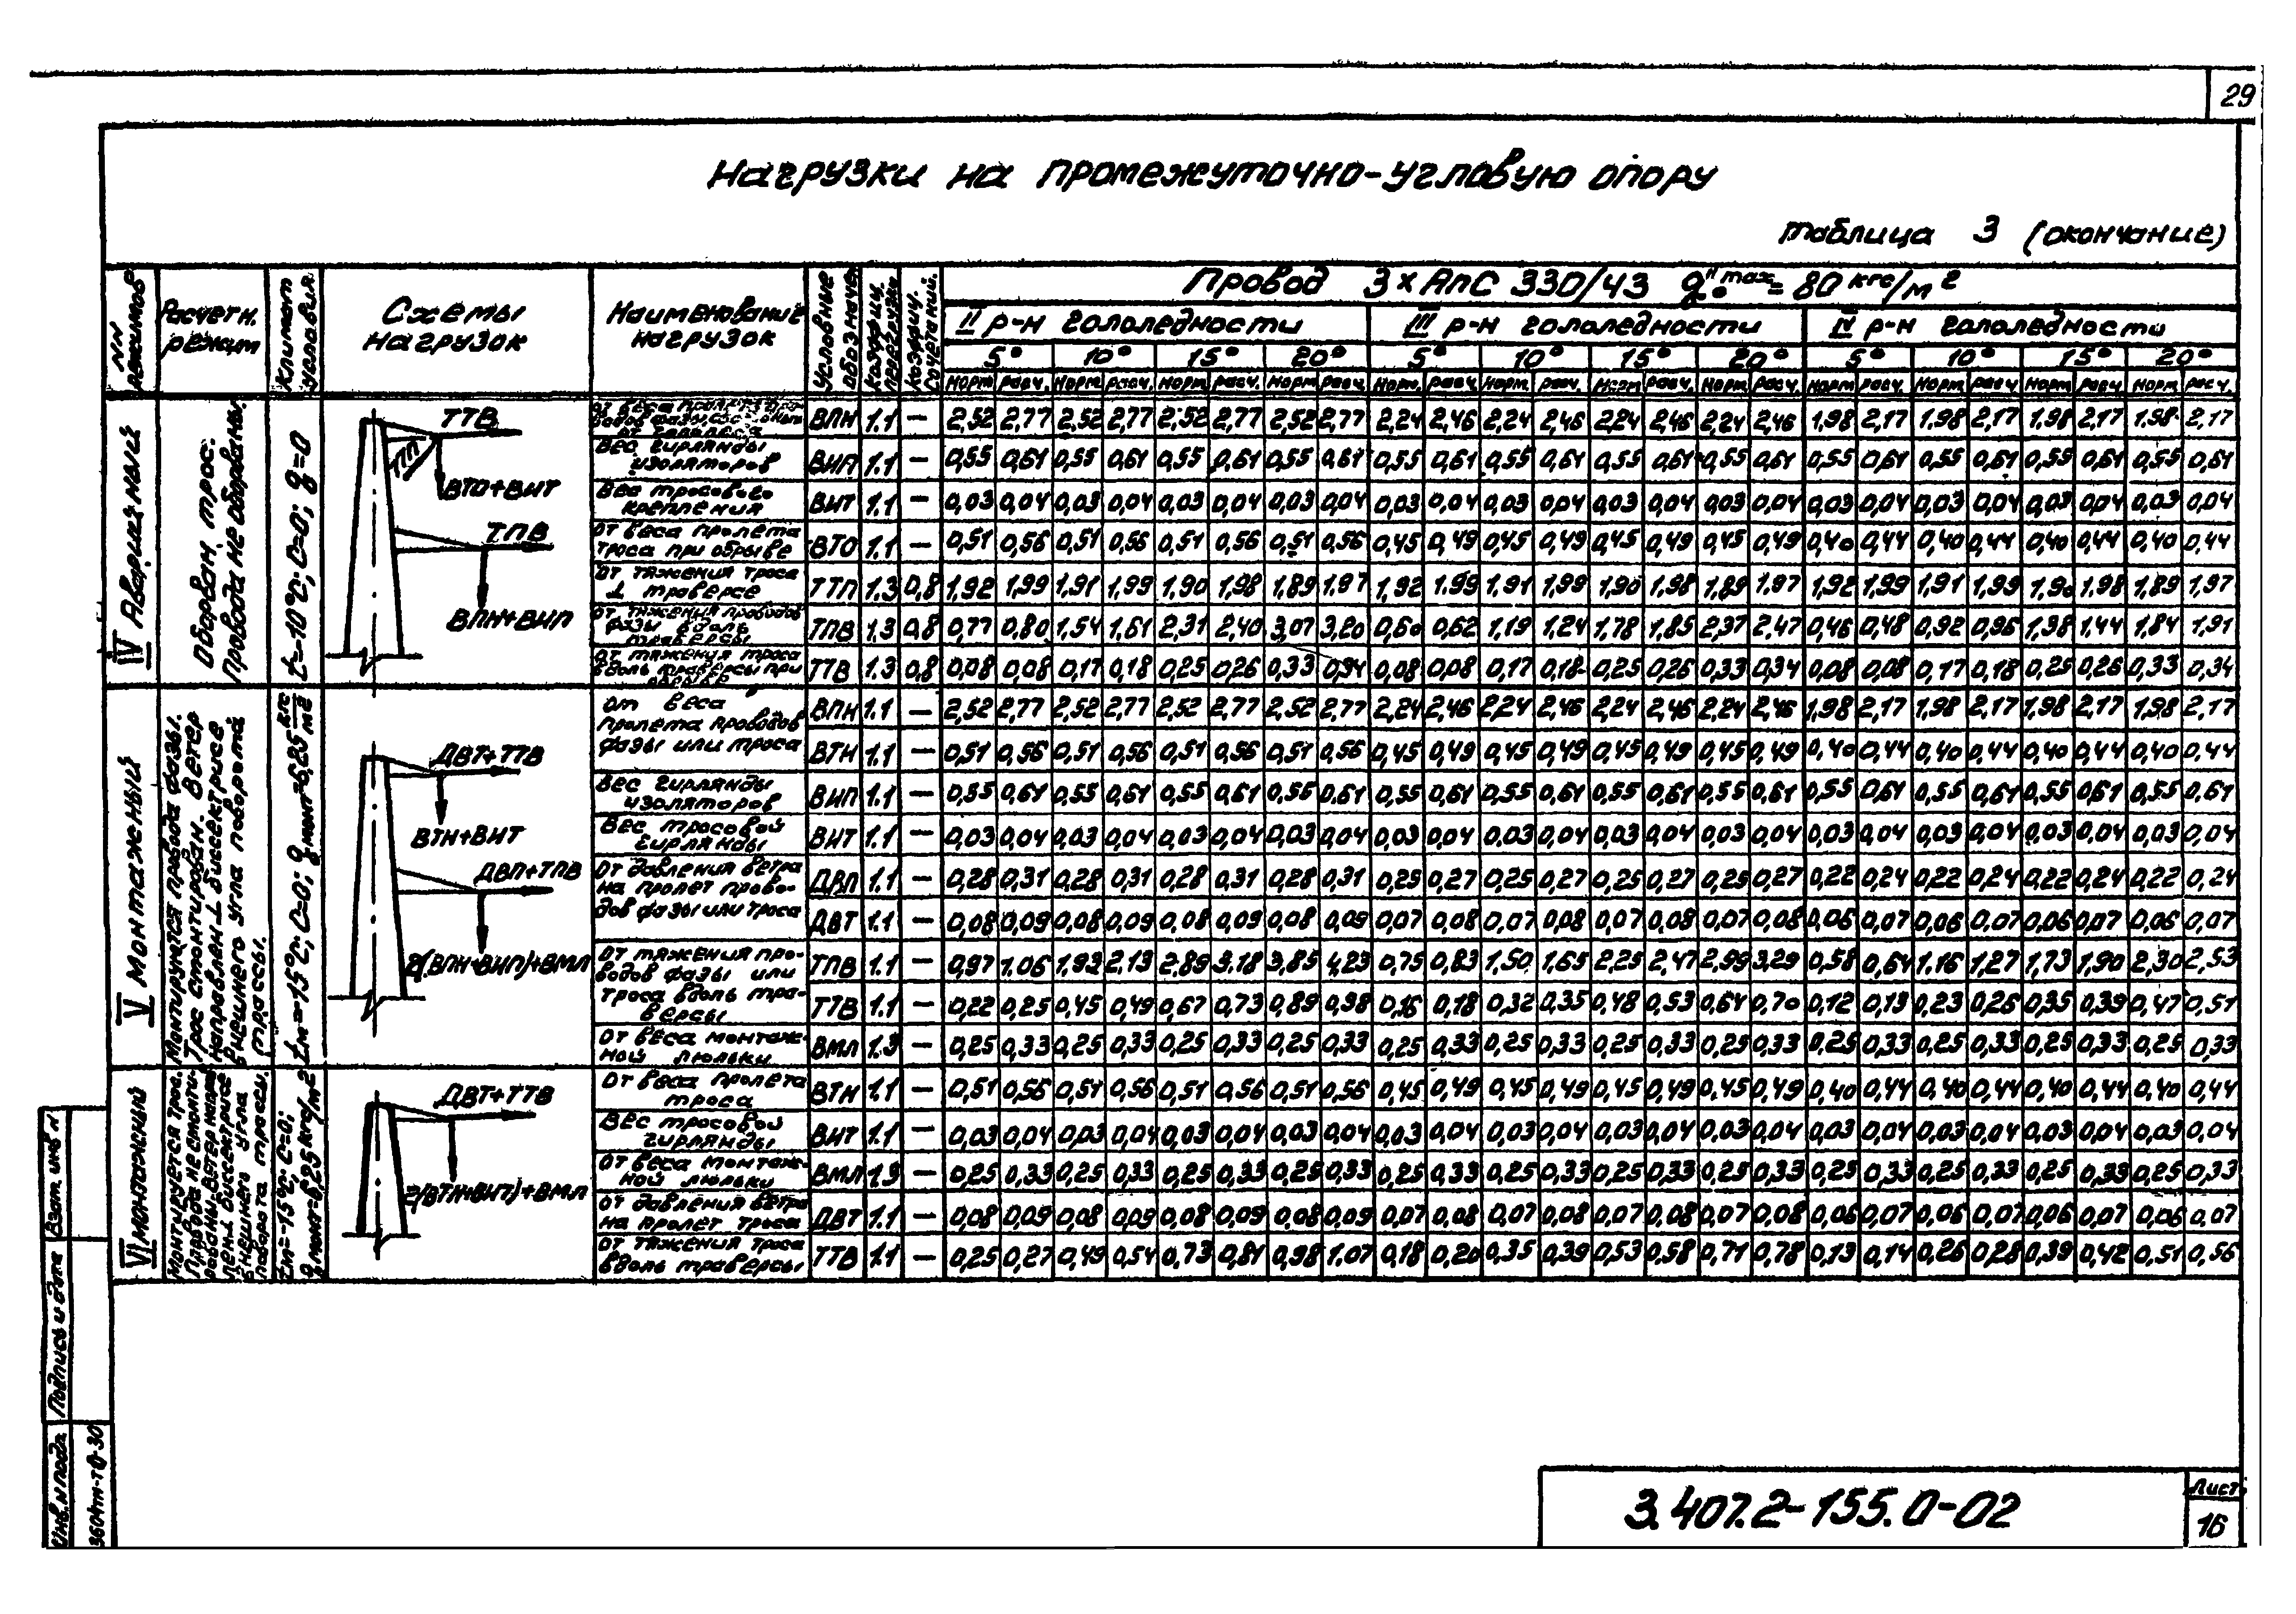 29
Нагрузки на промежуточно-угловую опору
таблица 3 (окончание)
NN режимов
Расчетн. режим
Климат условия
Схемы нагрузок
Наименование нагрузок
Условные обознач.
Коэффиц. перегрузки
Коэффиц. сочетаний.
Провод 3×АпС 330/43 q₀ᴵᴵmax = 80 кгс/м²
II р-н гололедности III р-н гололедности IV р-н гололедности
5° 10° 15° 20° 5° 10° 15° 20° 5° 10° 15° 20°
норм расч. норм расч. норм расч. норм расч. норм. расч. норм. расч. норм расч. норм расч. норм расч. норм расч. норм расч. норм расч.
IV Аварийный
Оборван трос. Провода не оборваны.
t=-10°C; C=0; q=0
ТТВ
ТТП
ВТО+ВИТ
ТПВ
ВПН+ВИП
ВПН 1.1 — 2,52 2,77 2,52 2,77 2,52 2,77 2,52 2,77 2,24 2,46 2,24 2,46 2,24 2,46 2,24 2,46 1,98 2,17 1,98 2,17 1,98 2,17 1,98 2,17
Вес гирлянды изоляторов ВИП 1.1 — 0,55 0,61 0,55 0,61 0,55 0,61 0,55 0,61 0,55 0,61 0,55 0,61 0,55 0,61 0,55 0,61 0,55 0,61 0,55 0,61 0,55 0,61 0,55 0,61
Вес тросового крепления ВИТ 1.1 — 0,03 0,04 0,03 0,04 0,03 0,04 0,03 0,04 0,03 0,04 0,03 0,04 0,03 0,04 0,03 0,04 0,03 0,04 0,03 0,04 0,03 0,04 0,03 0,04
От веса пролета троса при обрыве ВТО 1.1 — 0,51 0,56 0,51 0,56 0,51 0,56 0,51 0,56 0,45 0,49 0,45 0,49 0,45 0,49 0,45 0,49 0,40 0,44 0,40 0,44 0,40 0,44 0,40 0,44
От тяжения троса ⊥ траверсе ТТП 1.3 0,8 1,92 1,99 1,91 1,99 1,90 1,98 1,89 1,97 1,92 1,99 1,91 1,99 1,90 1,98 1,89 1,97 1,92 1,99 1,91 1,99 1,90 1,98 1,89 1,97
От тяжения проводов фазы вдоль траверсы ТПВ 1.3 0,8 0,77 0,80 1,54 1,61 2,31 2,40 3,07 3,20 0,60 0,62 1,19 1,24 1,78 1,85 2,37 2,47 0,46 0,48 0,92 0,96 1,38 1,44 1,84 1,91
От тяжения троса вдоль траверсы при обрыве ТТВ 1.3 0,8 0,08 0,08 0,17 0,18 0,25 0,26 0,33 0,34 0,08 0,08 0,17 0,18 0,25 0,26 0,33 0,34 0,08 0,08 0,17 0,18 0,25 0,26 0,33 0,34
V Монтажный
Монтируются провода фазы. Трос смонтирован. Ветер направлен ⊥ биссектрисе внешнего угла поворота трассы.
tм=-15°C; C=0; qмонт=6,25 кгс/м²
ДВТ+ТТВ
ВТН+ВИТ
ДВП+ТПВ
2(ВПН+ВИП)+ВМЛ
От веса пролета проводов фазы или троса
ВПН 1.1 — 2,52 2,77 2,52 2,77 2,52 2,77 2,52 2,77 2,24 2,46 2,24 2,46 2,24 2,46 2,24 2,46 1,98 2,17 1,98 2,17 1,98 2,17 1,98 2,17
ВТН 1.1 — 0,51 0,56 0,51 0,56 0,51 0,56 0,51 0,56 0,45 0,49 0,45 0,49 0,45 0,49 0,45 0,49 0,40 0,44 0,40 0,44 0,40 0,44 0,40 0,44
Вес гирлянды изоляторов ВИП 1.1 — 0,55 0,61 0,55 0,61 0,55 0,61 0,55 0,61 0,55 0,61 0,55 0,61 0,55 0,61 0,55 0,61 0,55 0,61 0,55 0,61 0,55 0,61 0,55 0,61
Вес тросовой гирлянды ВИТ 1.1 — 0,03 0,04 0,03 0,04 0,03 0,04 0,03 0,04 0,03 0,04 0,03 0,04 0,03 0,04 0,03 0,04 0,03 0,04 0,03 0,04 0,03 0,04 0,03 0,04
От давления ветра на пролет проводов фазы или троса
ДВП 1.1 — 0,28 0,31 0,28 0,31 0,28 0,31 0,28 0,31 0,25 0,27 0,25 0,27 0,25 0,27 0,25 0,27 0,22 0,24 0,22 0,24 0,22 0,24 0,22 0,24
ДВТ 1.1 — 0,08 0,09 0,08 0,09 0,08 0,09 0,08 0,09 0,07 0,08 0,07 0,08 0,07 0,08 0,07 0,08 0,06 0,07 0,06 0,07 0,06 0,07 0,06 0,07
От тяжения проводов фазы или троса вдоль траверсы
ТПВ 1.1 — 0,97 1,06 1,93 2,13 2,89 3,18 3,85 4,23 0,75 0,83 1,50 1,65 2,25 2,47 2,99 3,29 0,58 0,64 1,16 1,27 1,73 1,90 2,30 2,53
ТТВ 1.1 — 0,22 0,25 0,45 0,49 0,67 0,73 0,89 0,98 0,16 0,18 0,32 0,35 0,48 0,53 0,64 0,70 0,12 0,13 0,23 0,26 0,35 0,39 0,47 0,51
От веса монтажной люльки ВМЛ 1.3 — 0,25 0,33 0,25 0,33 0,25 0,33 0,25 0,33 0,25 0,33 0,25 0,33 0,25 0,33 0,25 0,33 0,25 0,33 0,25 0,33 0,25 0,33 0,25 0,33
VI монтажный
Монтируется трос. Провода не смонтированы. Ветер направлен ⊥ биссектрисе внешнего угла поворота трассы.
tм=-15°C; C=0; qмонт=6,25 кгс/м²
ДВТ+ТТВ
2(ВТН+ВИТ)+ВМЛ
От веса пролета троса ВТН 1.1 — 0,51 0,56 0,51 0,56 0,51 0,56 0,51 0,56 0,45 0,49 0,45 0,49 0,45 0,49 0,45 0,49 0,40 0,44 0,40 0,44 0,40 0,44 0,40 0,44
Вес тросовой гирлянды ВИТ 1.1 — 0,03 0,04 0,03 0,04 0,03 0,04 0,03 0,04 0,03 0,04 0,03 0,04 0,03 0,04 0,03 0,04 0,03 0,04 0,03 0,04 0,03 0,04 0,03 0,04
От веса монтажной люльки ВМЛ 1.3 — 0,25 0,33 0,25 0,33 0,25 0,33 0,25 0,33 0,25 0,33 0,25 0,33 0,25 0,33 0,25 0,33 0,25 0,33 0,25 0,33 0,25 0,33 0,25 0,33
От давления ветра на пролет троса ДВТ 1.1 — 0,08 0,09 0,08 0,09 0,08 0,09 0,08 0,09 0,07 0,08 0,07 0,08 0,07 0,08 0,07 0,08 0,06 0,07 0,06 0,07 0,06 0,07 0,06 0,07
От тяжения троса вдоль траверсы ТТВ 1.1 — 0,25 0,27 0,49 0,54 0,73 0,81 0,98 1,07 0,18 0,20 0,35 0,39 0,53 0,58 0,71 0,78 0,13 0,14 0,26 0,28 0,39 0,42 0,51 0,56
Взам. инв N
Подпись и дата
Инв. N подл.
3604тм-т0-30
3.407.2-155.0-02
Лист
16